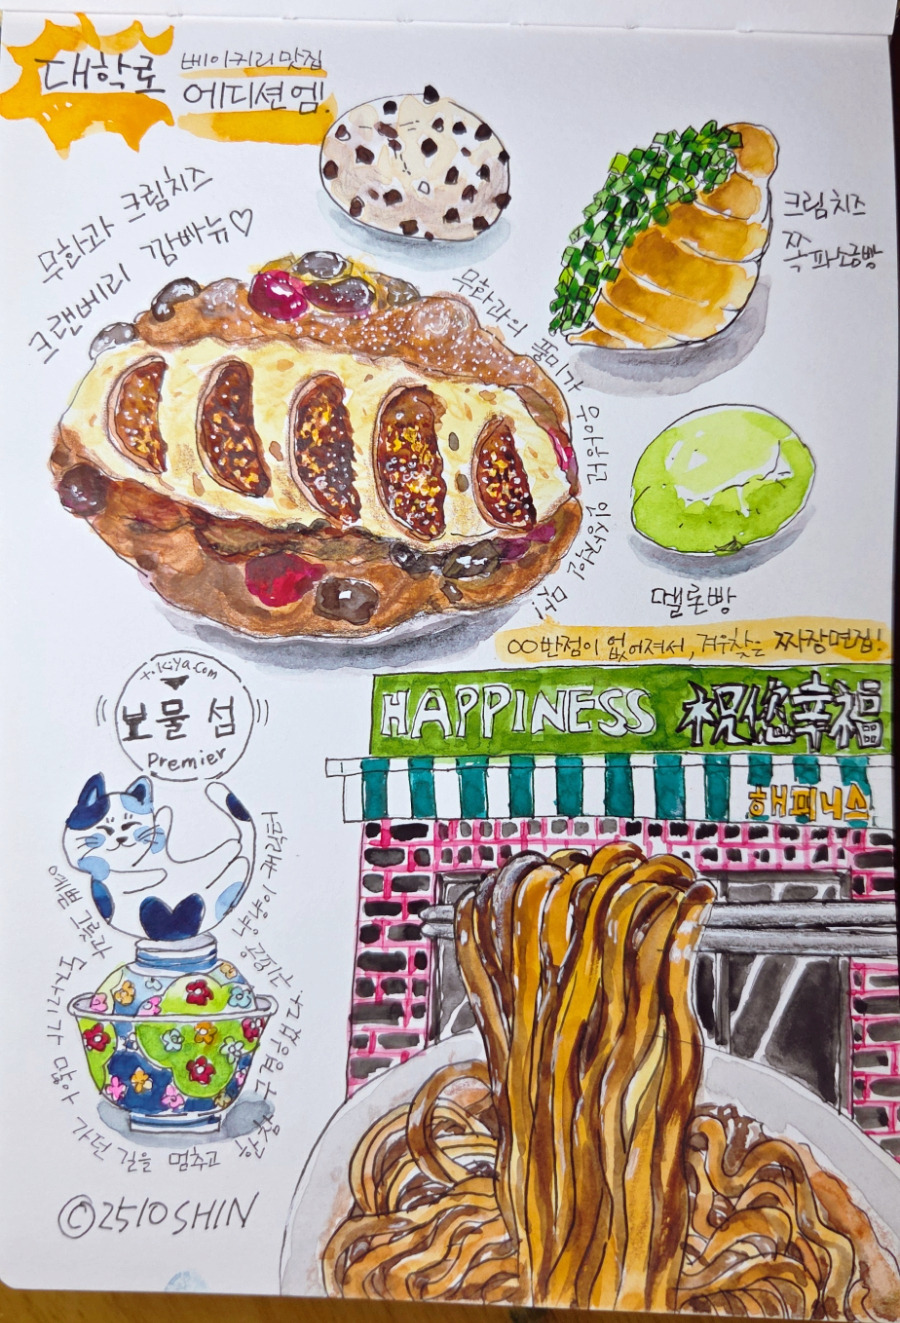 대학로
베이커리 맛집
에디션엠!
무화과 크림치즈
크랜베리 깜빠뉴♡
크림치즈
쪽파소금빵
무화과의 풍미가 우아하고 인상적인 맛!
멜론빵
OO반점이 없어져서, 겨우찾은 짜장면집!
HAPPINESS 祝您幸福
해피니스
x.kiya.com
보물 섬
Premier
예쁜 그릇과 도자기가 많아
가던 길을 멈추고
한참 구경했다.
©2510SHIN